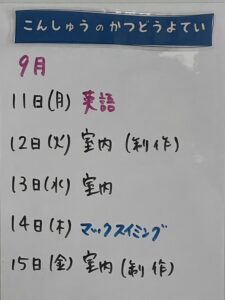 こんしゅうのかつどうよてい
9月
11日(月) 英語
12日(火) 室内 (制作)
13日(水) 室内
14日(木) マックスイミング
15日(金) 室内(制作)